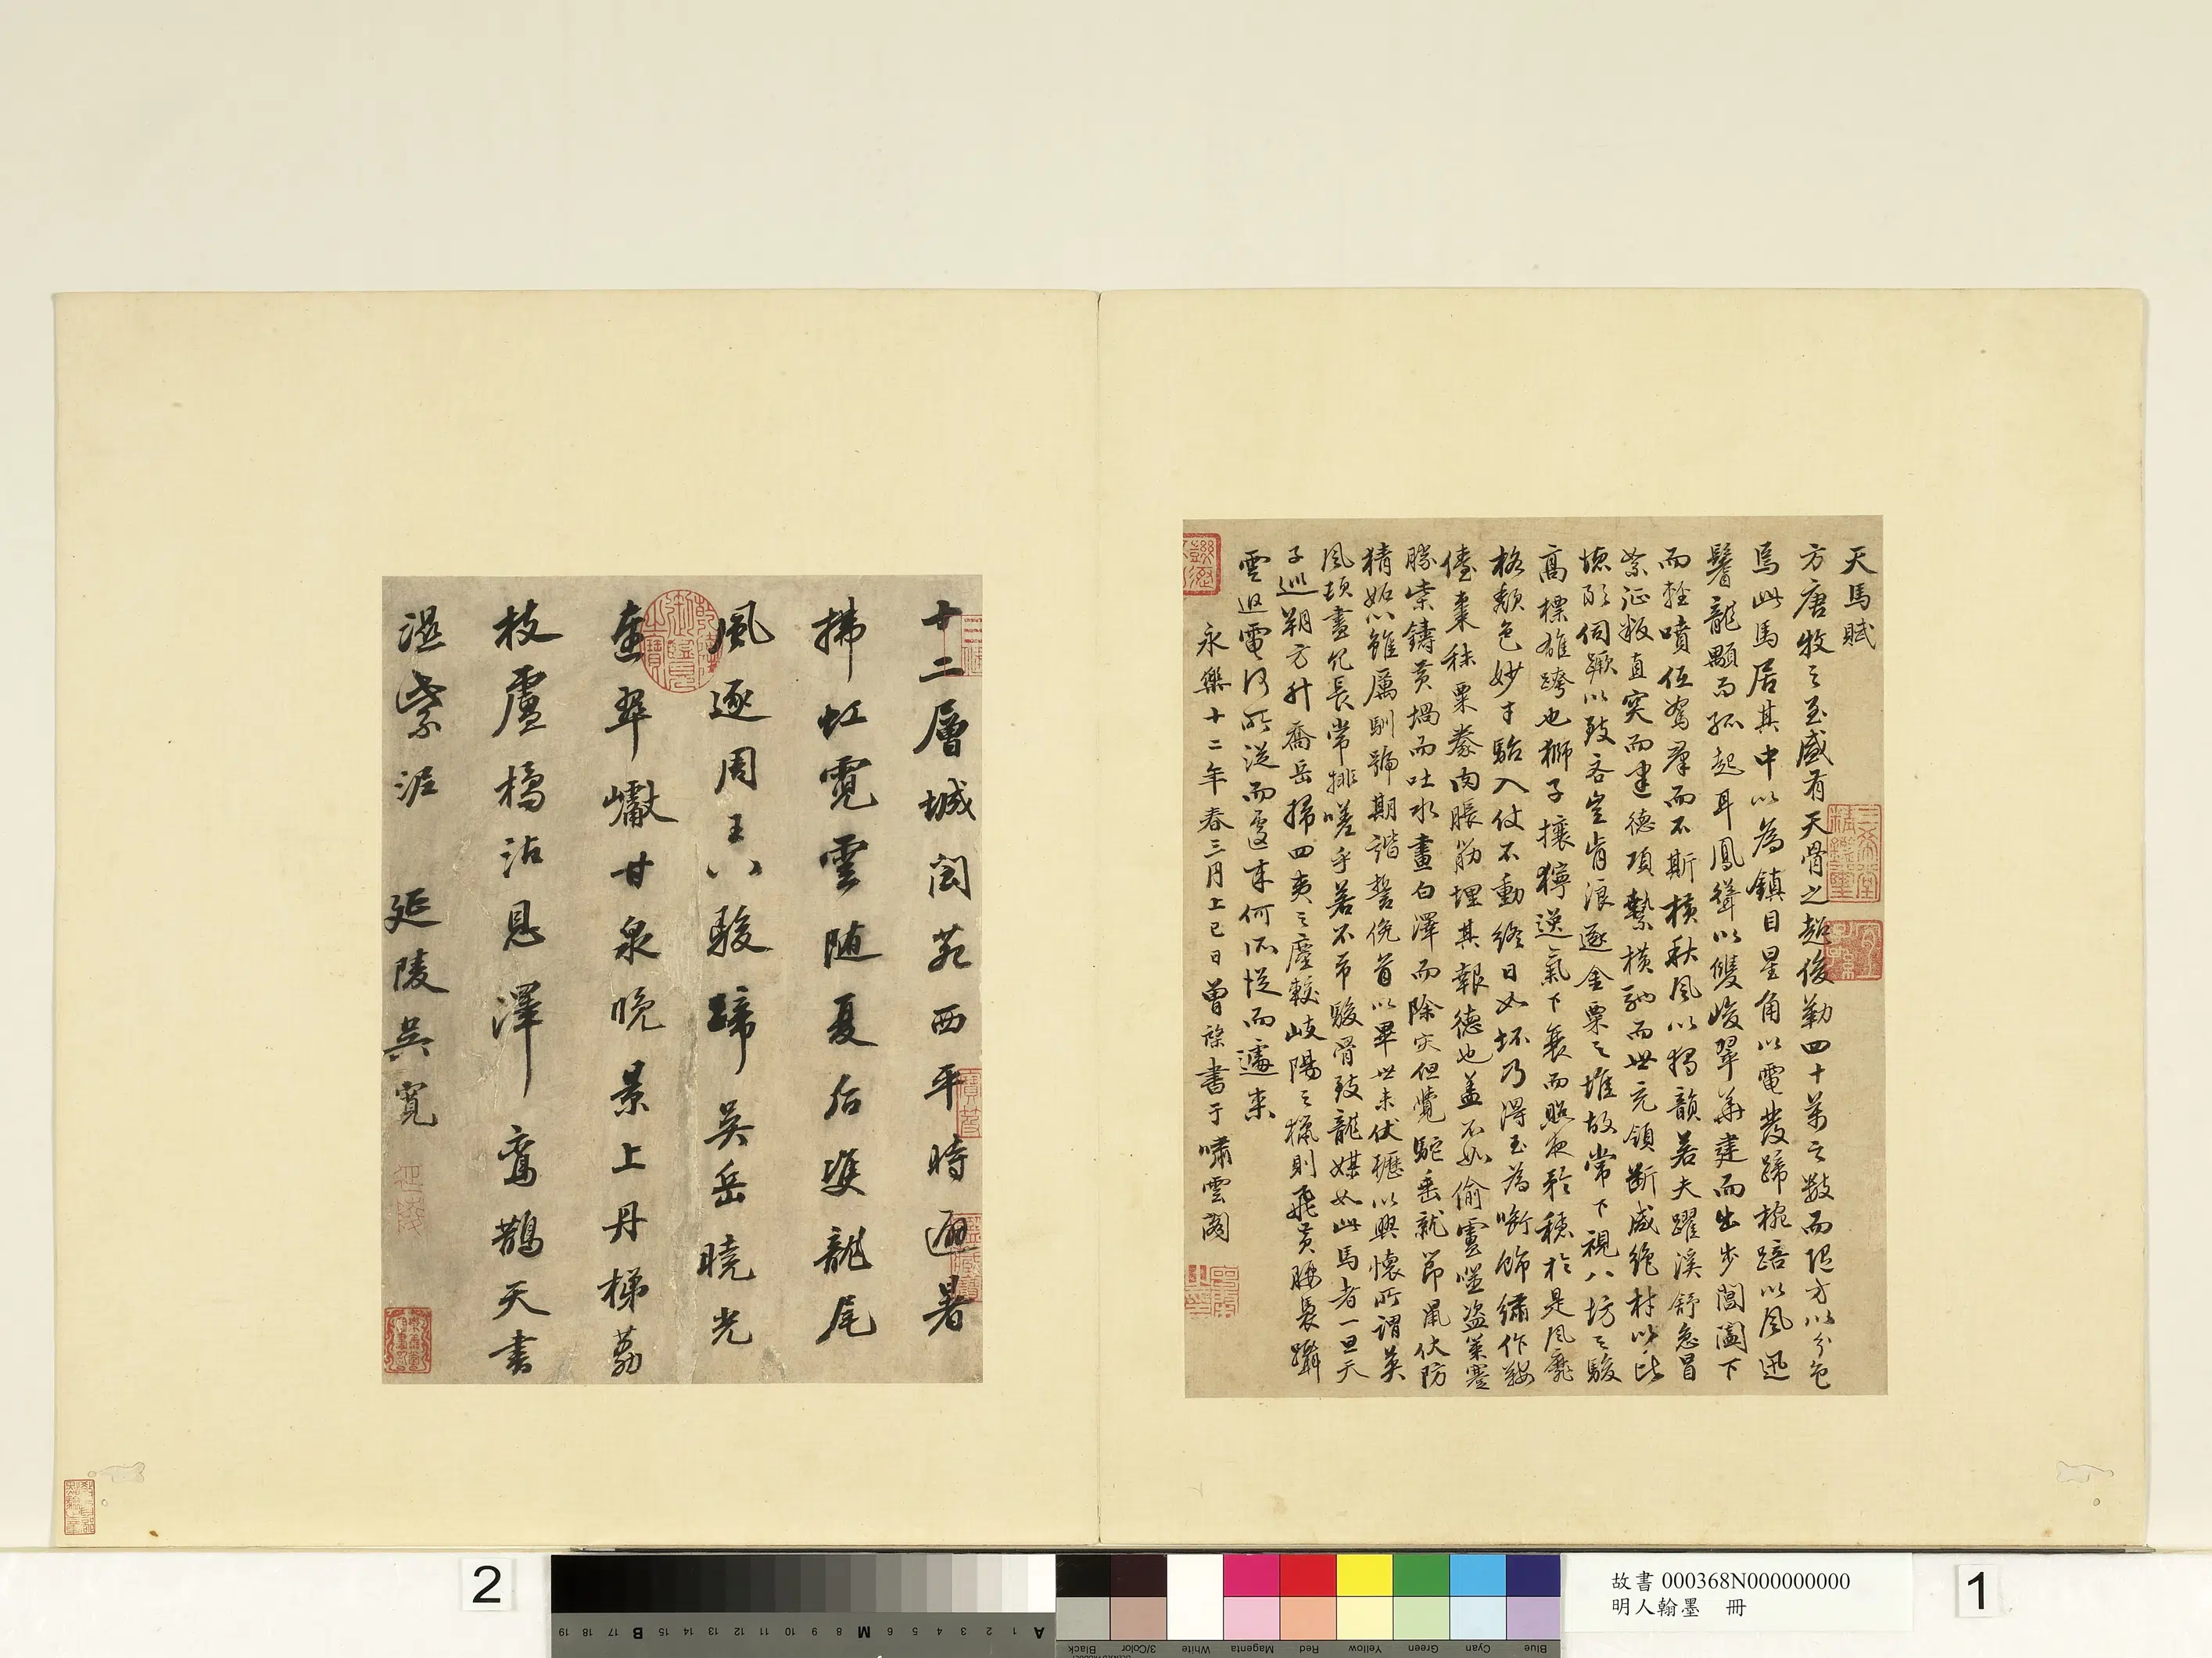 天馬賦
方唐牧之至盛有天骨之超俊勒四十萬之數而隨方以分色
焉此馬居其中以為鎮目星角以電發蹄椀踣以風迅
鬐龍顒而孤起耳鳳聳以雙峻翠華建而出步閶闔下
而輕噴低駑羣而不斯橫秋風以獨韻若夫躍溪舒急冒
絮征叛直突而建德項縶橫馳而世充領斷咸絕材以比
德敢伺蹶以致吝豈肯浪逐金粟之堆故當下視八坊之駿
高標雄跨也獅子攘獰逆氣下衰而照夜矜穩於是風靡
格頹色妙才駘入仗不動終日如坏乃得玉為啣飾繡作鞍
儓棗秣粟豢肉脹筋埋其報德也蓋不如偷盧噬盜策蹇
勝柴鑄黃堝而吐水畫白澤而除灾但覺駝垂就節鼠伏防
猜妬心雖厲馴號期諧誓俛首以畢世未伏櫪以興懷所謂英
風頓盡冗長常排嗟乎若不市駿骨致龍媒如此馬者一旦天
子巡朔方升喬岳掃四夷之塵較岐陽之獵則飛黃腰褭躡
雲追電何所從而遽來何所從而遽來
永樂十二年春三月上巳日曾棨書于嘯雲閣
十二層城閬苑西平時避暑
拂虹霓雲随夏后雙龍尾
風逐周王八駿蹄吳岳曉光
連翠巘甘泉晚景上丹梯荔
枝盧橘沾恩澤鸞鵲天書
濕紫泥　延陵吳寬
2
1
故書 000368N000000000
明人翰墨　冊
A 1 2 3 4 5 6 M 8 9 10 11 12 13 14 15 B 17 18 19
Blue Cyan Green Yellow Red Magenta White 3/Color Black